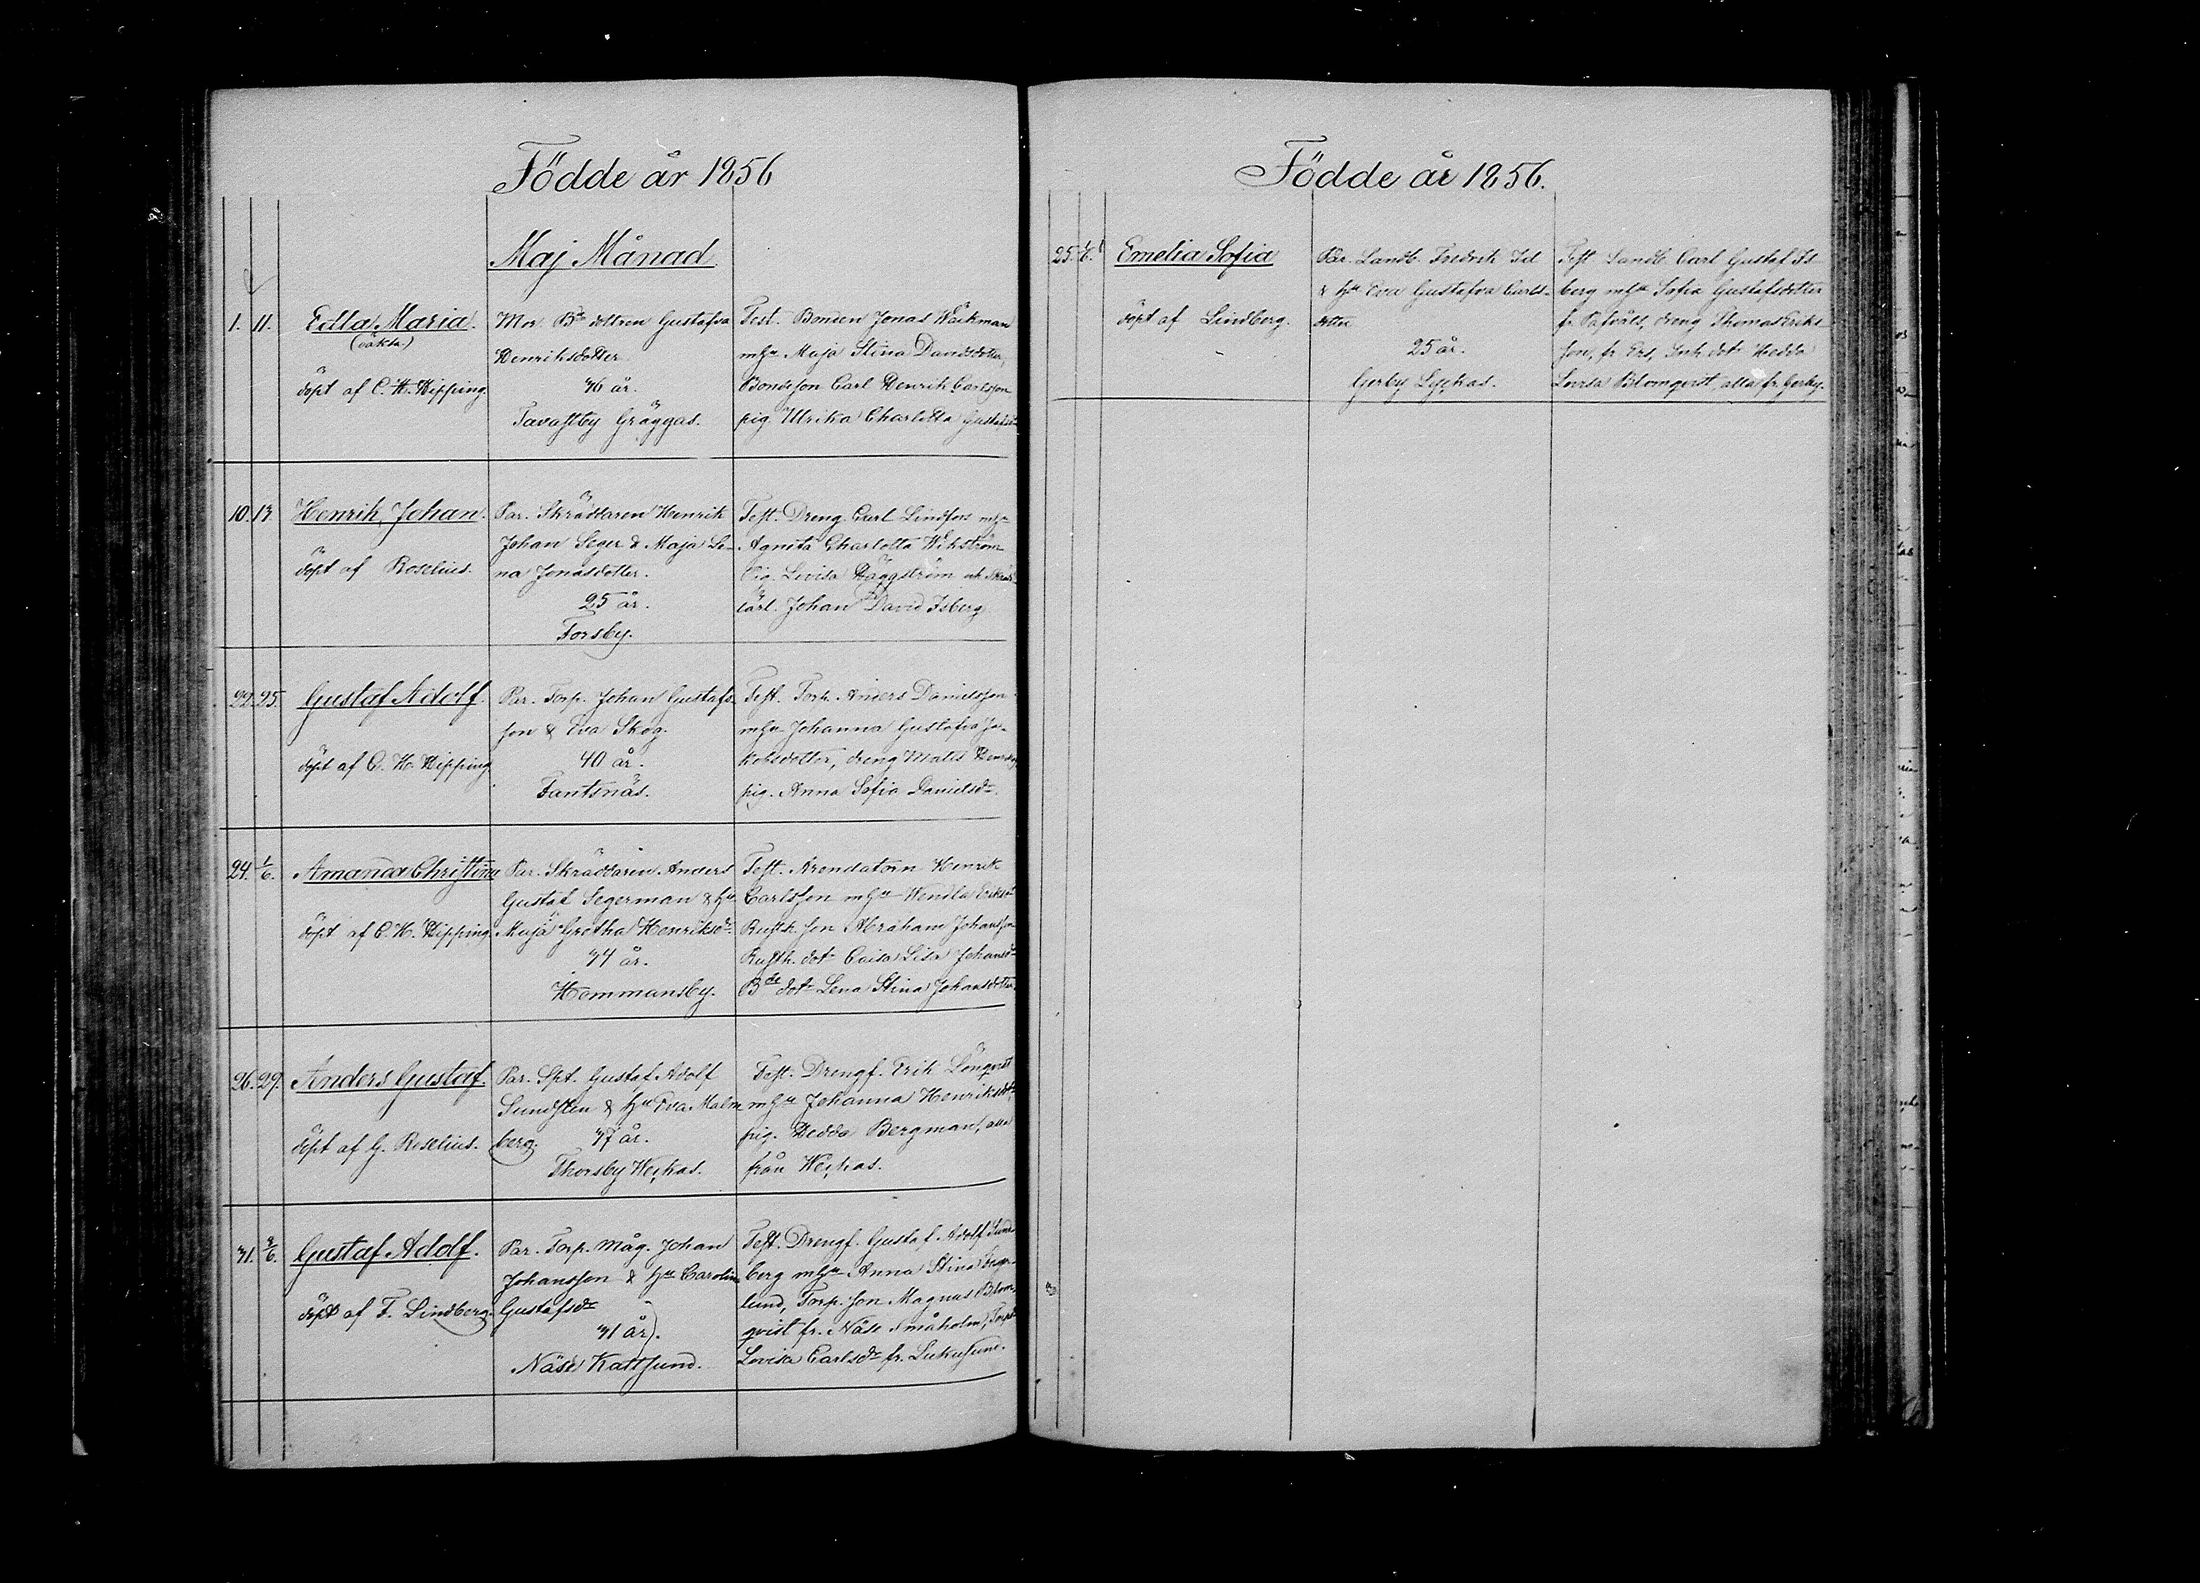 Födde år 1856
Maj Månad
1. 11. Edla Maria.
(oäkta)
döpt af C. H. Hipping.
Mor. Bde dottren Gustafva
Henriksdotter
36 år.
Tavastby Gräggas.
Test. Bonden Jonas Wäckman
mhu Maja Stina Davidsdotter,
Bondeson Carl Henrik Carlsson
pig. Ulrika Charlotta
10. 13. Henrik Johan.
döpt af Roselius.
Par. Skräddaren Henrik
Johan Seger & Maja Le-
na Jonasdotter.
25 år.
Forsby.
Test. Dreng Carl Lindfors mhu
Agneta Charlotta Wikström
Pig. Lovisa Häggström och
lärl. Johan David Isberg
22. 25. Gustaf Adolf.
döpt af C. H. Hipping
Par. Torp. Johan Gustafs-
son & Eva Skog.
40 år.
Fantsnäs.
Test. Torp. Anders Danielsson
mhu Johanna Gustafva Ja-
kobsdotter, dreng Matts
pig. Anna Sofia Danielsdr.
24. 1/6. Amanda Christina
döpt af C. H. Hipping.
Par. Skräddaren Anders
Gustaf Segerman & hu
Maja Gretha Henriksdr
34 år.
Hommansby.
Test. Arendatorn Henrik
Carlsson mhu Wendla
Rusth. son Abraham Johansson
Rusth. dotr Caisa Lisa Johansdr
Bde dotr Lena Stina Johansdotter
26. 29. Anders Gustaf.
döpt af G. Roselius.
Par. Spt. Gustaf Adolf
Sundsten & hu Eva Malm
berg. 37 år.
Thorsby Weckas.
Test. Drengf. Erik Lönqvist
mhu Johanna Henriksdotr,
pig. Hedda Bergman, alla
från Weckas.
31. 3/6. Gustaf Adolf.
döpt af F. Lindberg.
Par. Torp. måg. Johan
Johansson & hu Carolina
Gustafsdr
31 år.
Näse Kattsund.
Test. Drengf. Gustaf Adolf Sund-
berg mhu Anna Stina
lund, Torp. son Magnus Blom-
qvist fr. Näse Småholm,
Lovisa Carlsdr fr.
Födde år 1856.
25. 1/6. Emelia Sofia
döpt af Lindberg.
Par. Landb. Fredrik
& hu Eva Gustafva Carls-
dotter
25 år.
Gerby Lyckas.
Test. Landb. Carl Gustaf Is-
berg mhu Sofia Gustafsdotter
fr. dreng Thomas Eriks
son, fr. dotr Hedda
Lovisa Blomqvist, alla fr. Gerby.